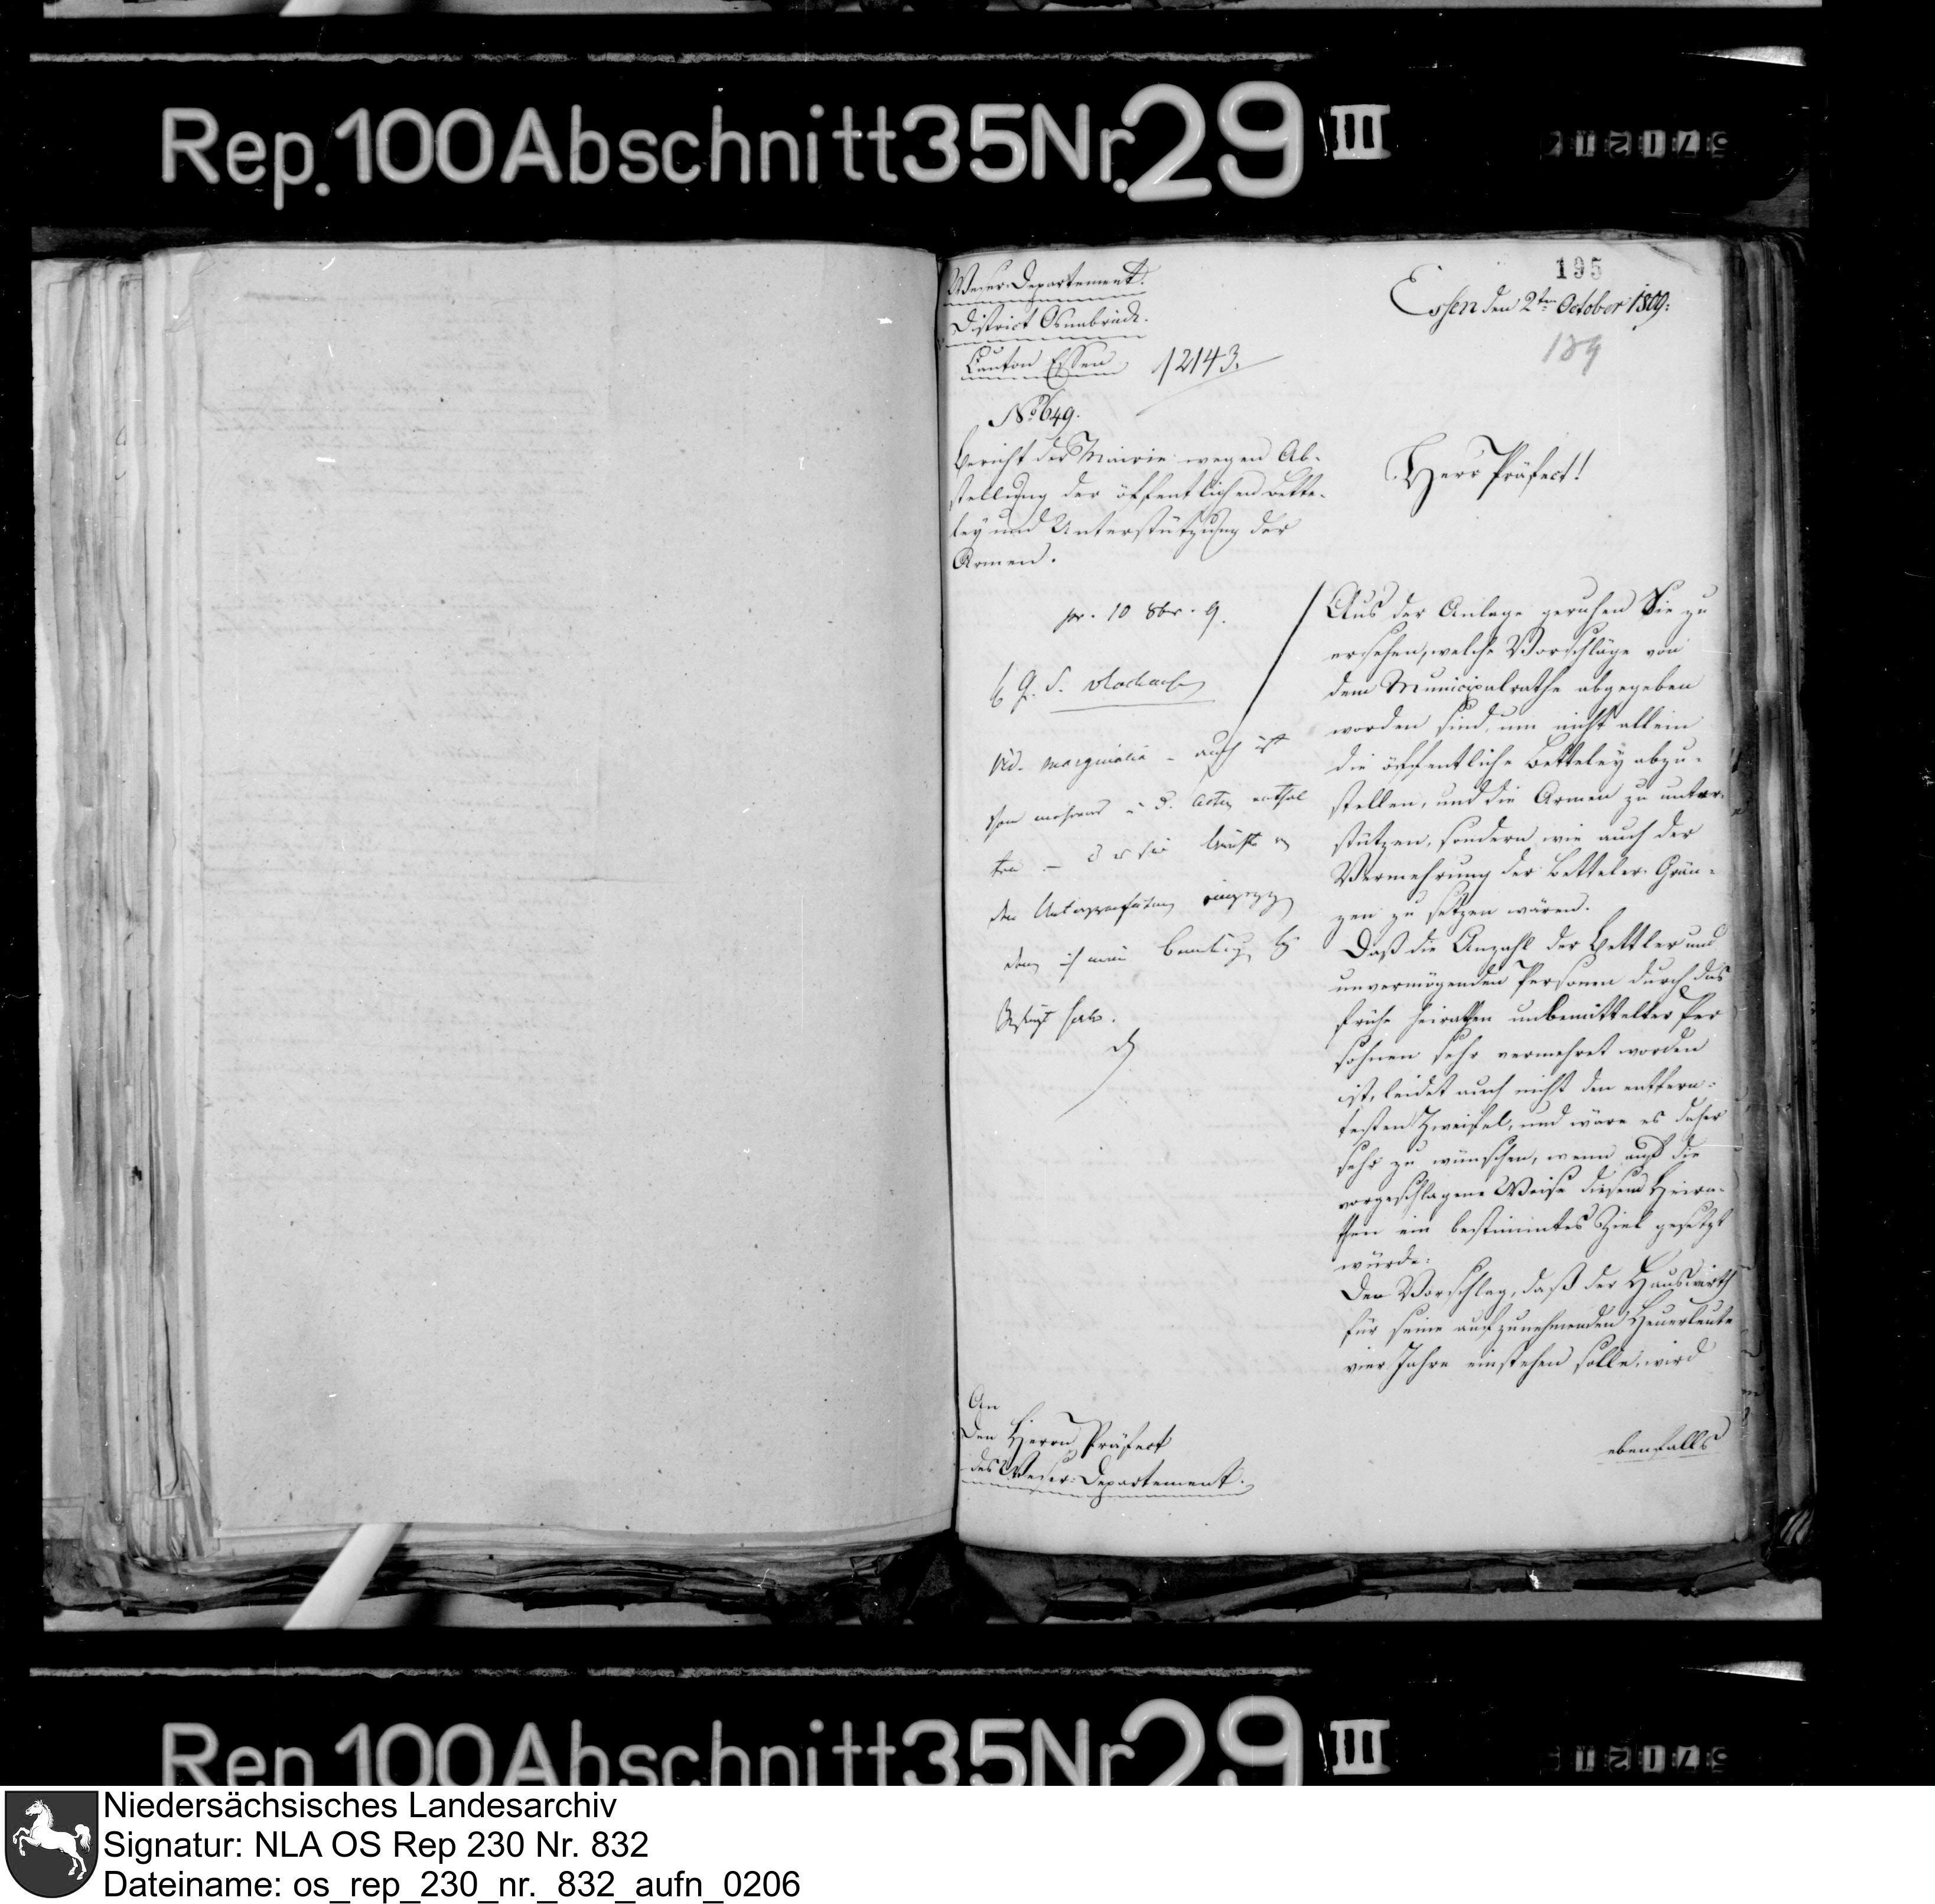 Rep. 100 Abschnitt 35 Nr. 29 III
195
Weser-Departement.
District Osnabrück.
Canton Essen
12143.
No 649.
Essen den 2ten October 1809.
189
Bericht des Mairie wegen Ab-
stellung der öffentlichen Bette-
ley und Unterstützung der
Armen.
Herr Präfect!
pr. 10 8br. 9.
vid. marginalia - auch ist
Aus der Anlage geruhen Sie zu
ersehen, welche Vorschläge von
dem Municipalrathe abgegeben
worden sind, um nicht allein
die öffentliche Betteley abzu-
stellen, und die Armen zu unter-
stützen, sondern wie auch der
Vermehrung der Betteler Grän-
zen zu setzen wären.
Daß die Anzahl der Bettler und
unvermögenden Personen durch das
frühe heirathen unbemittelter Per
sohnen sehr vermehret worden
ist, leidet auch nicht den entfern-
testen Zweifel, und wäre es daher
sehr zu wünschen, wenn auf die
vorgeschlagene Weise diesem Heira-
then ein bestimmtes Ziel gesetzt
würde.
Der Vorschlag, daß der Hauswirth
für seine aufzunehmenden Heuerleute
vier Jahre einstehen solle, wird
ebenfalls
An
Den Herrn Präfect
des Weser-Departement.
Rep. 100 Abschnitt 35 Nr. 29 III
Niedersächsisches Landesarchiv
Signatur: NLA OS Rep 230 Nr. 832
Dateiname: os_rep_230_nr._832_aufn_0206